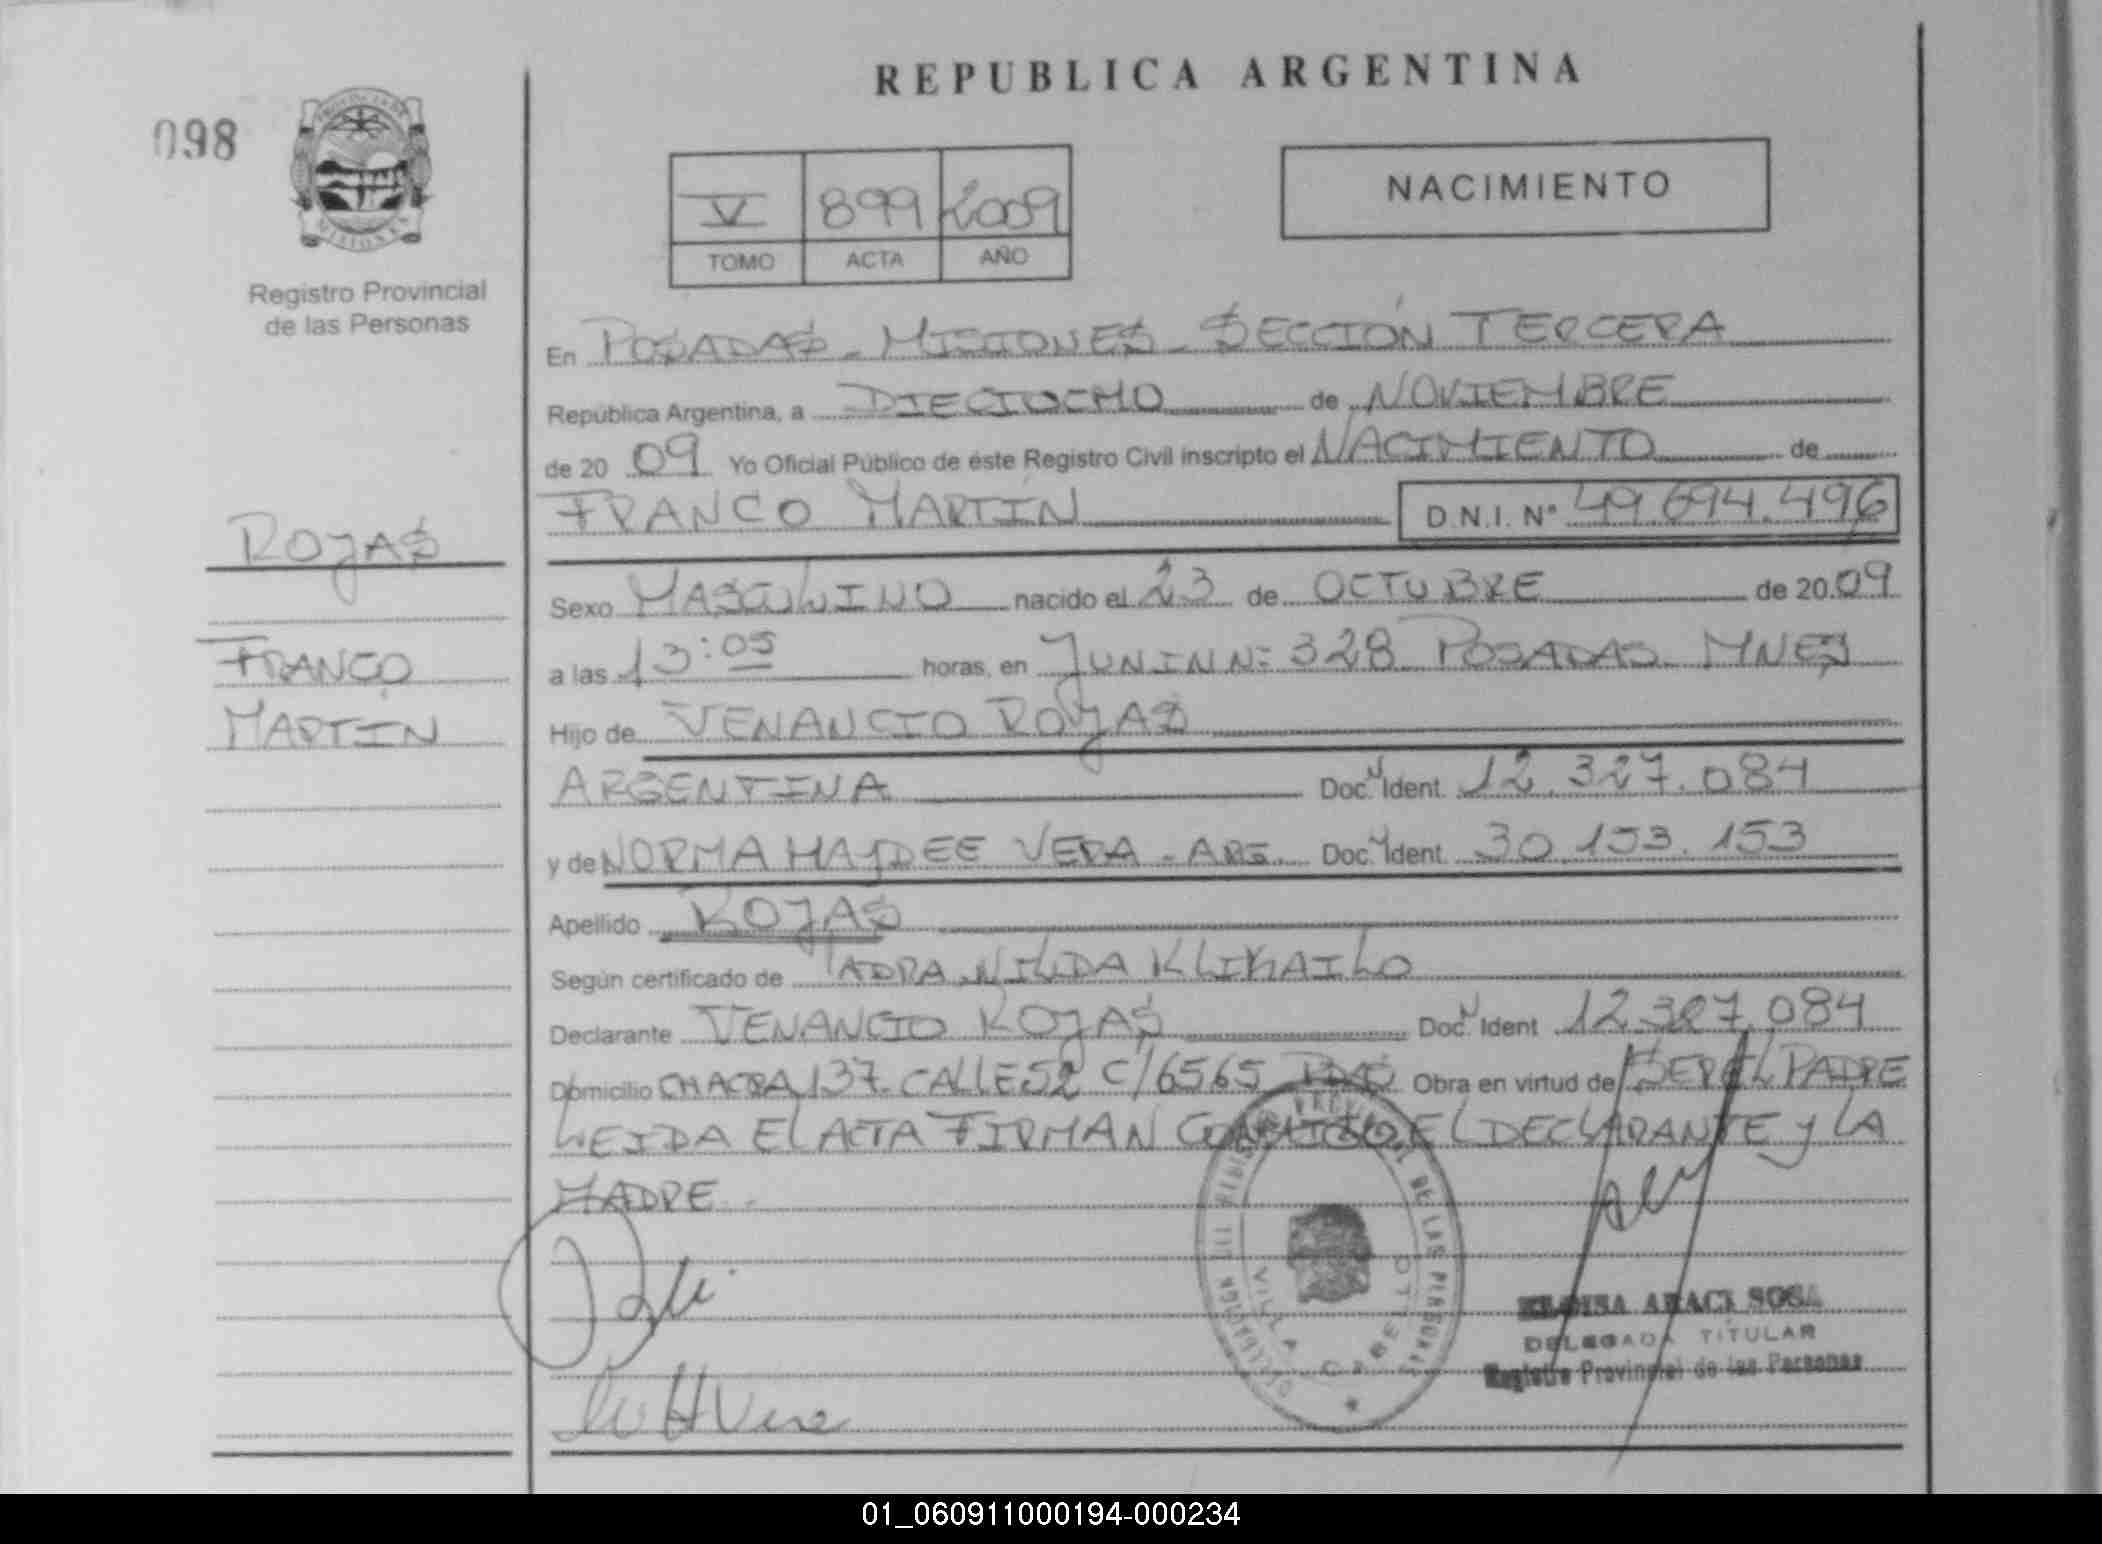 REPUBLICA ARGENTINA
098
PROVINCIA DE MISIONES
Registro Provincial
de las Personas
V 899 2009
TOMO ACTA AÑO
NACIMIENTO
En POSADAS - MISIONES - SECCIÓN TERCERA
República Argentina, a DIECIOCHO de NOVIEMBRE
de 20 09 Yo Oficial Público de éste Registro Civil inscripto el NACIMIENTO de
FRANCO MARTIN D.N.I. Nº 49.694.496
ROJAS
FRANCO
MARTIN
Sexo MASCULINO nacido el 23 de OCTUBRE de 20 09
a las 13:05 horas, en JUNIN Nº 328 POSADAS MNES
Hijo de VENANCIO ROJAS
ARGENTINA Doc. Ident. 12.327.084
y de NORMA HAYDEE VERA - ARG. Doc. Ident. 30.153.153
Apellido ROJAS
Según certificado de NILDA
Declarante VENANCIO ROJAS Doc. Ident 12.327.084
Domicilio CHACRA 137 CALLE 52 C/6565 PDAS Obra en virtud de SER EL PADRE
LEIDA EL ACTA FIRMAN CONMIGO EL DECLARANTE y LA
MADRE.
DELEGACION III REGISTRO PROVINCIAL DE LAS PERSONAS
VILLA CABELLO
ELOISA ARACI SOSA
DELEGADA TITULAR
Registro Provincial de las Personas
01_060911000194-000234